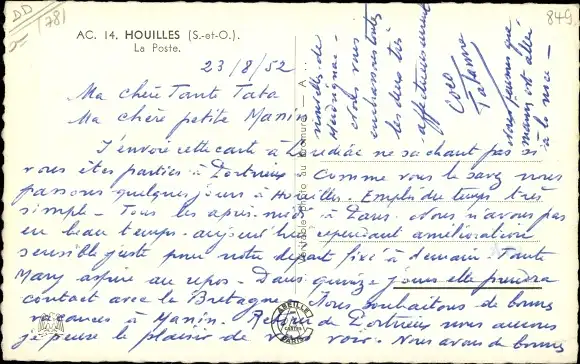 DD
(78)
849
AC. 14. HOUILLES (S.-et-O.).
La Poste.
23/8/52
Ma chère Tante Tata
Ma chère petite Manin
J'envoie cette carte à Loudéac ne sachant pas si
vous êtes parties à Portrieux. Comme vous le savez nous
passons quelques jours à Houilles. Emploi du temps très
simple - Tous les après-midi à Paris. Nous n'avons pas
eu beau temps. aujourd'hui cependant amélioration
sensible juste pour notre départ fixé à demain. Tante
Mary aspire au repos. Dans quinze jours elle prendra
contact avec la Bretagne. Nous souhaitons de bonnes
vacances à Manin. Retour de Portrieux nous aurons
le plaisir de vous voir. Nous avons de bonnes
nouvelles de
Nous vous
embrassons toutes
les deux très
affectueusement
Coco
Nous pensons que
maman est allée
à la noce -
Véritable photo au bromure - A
ABEILLE
CARTES
PARIS